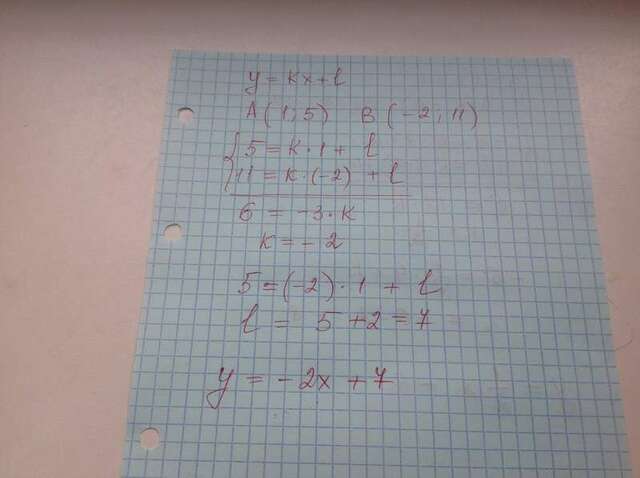 y = kx + l
A(1; 5) B(-2; 11)
5 = k · 1 + l
11 = k · (-2) + l
6 = -3 · k
k = -2
5 = (-2) · 1 + l
l = 5 + 2 = 7
y = -2x + 7